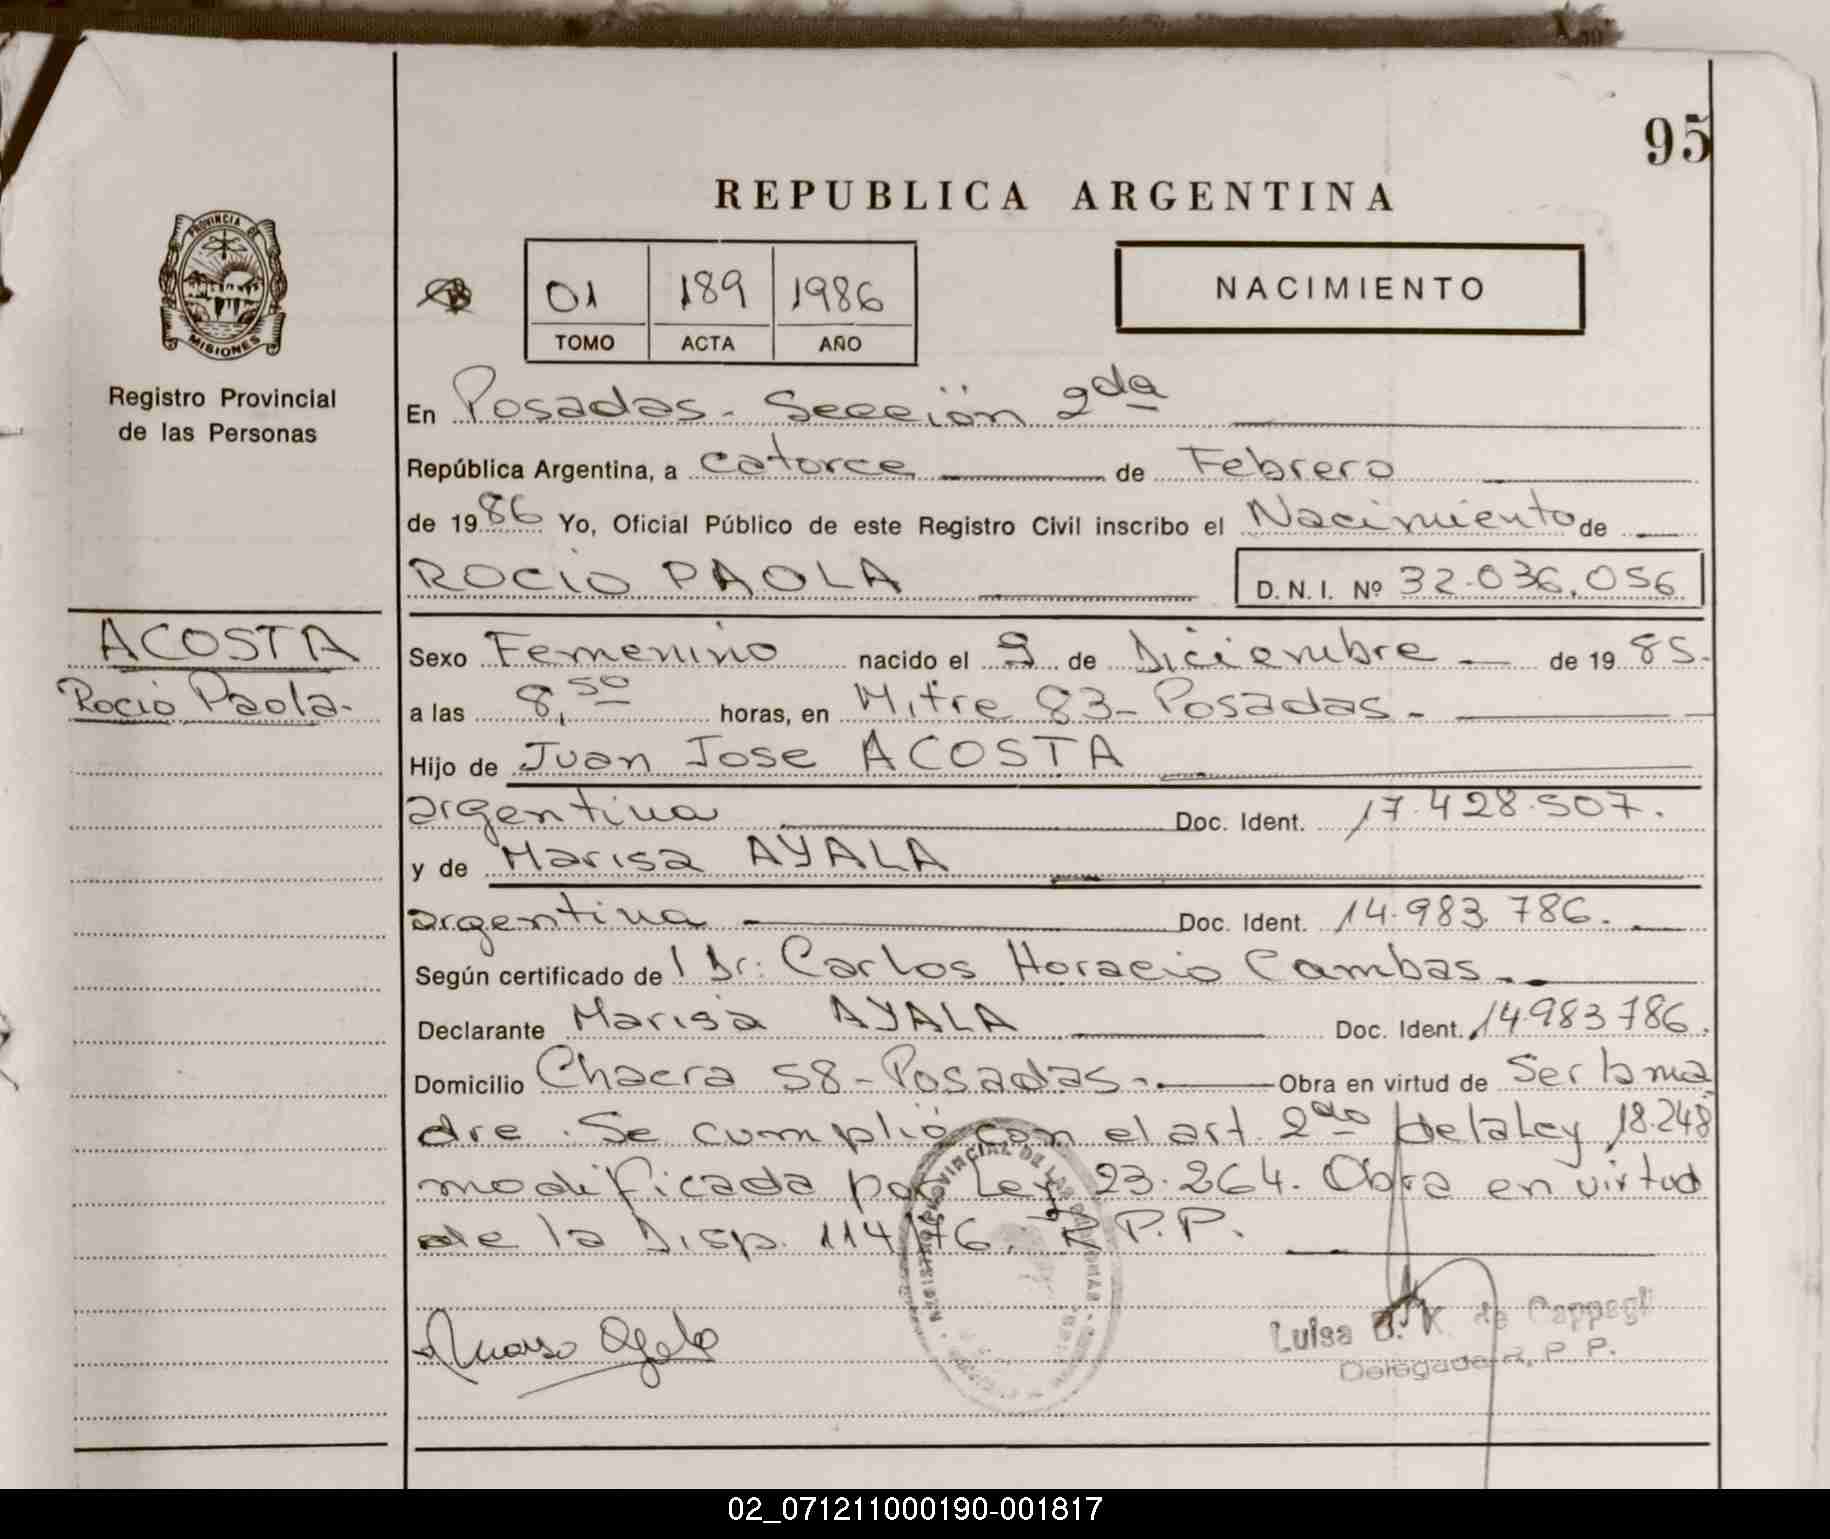 95
REPUBLICA ARGENTINA
PROVINCIA DE
MISIONES
01 189 1986
TOMO ACTA AÑO
NACIMIENTO
Registro Provincial
de las Personas
En Posadas - Sección 2da
República Argentina, a catorce de Febrero
de 1986 Yo, Oficial Público de este Registro Civil inscribo el Nacimiento de
ROCIO PAOLA D.N.I. Nº 32.036.056
ACOSTA
Rocio Paola.
Sexo Femenino nacido el 9 de Diciembre de 1985.
a las 8,50 horas, en Mitre 83 - Posadas -
Hijo de Juan Jose ACOSTA
argentina Doc. Ident. 17.428.507.
y de Marisa AYALA
argentina Doc. Ident. 14.983.786.
Según certificado del Dr: Carlos Horacio Cambas -
Declarante Marisa AYALA Doc. Ident. 14.983.786.
Domicilio Chacra 58 - Posadas - Obra en virtud de Ser la ma
dre. Se cumplió con el art. 2do de la Ley 18.248
modificada por Ley 23.264. Obra en virtud
de la Disp. 114/76. R.P.P.
REGISTRO PROVINCIAL DE LAS PERSONAS
Luisa B. K. de Cappagli
Delegada R. P. P.
02_071211000190-001817